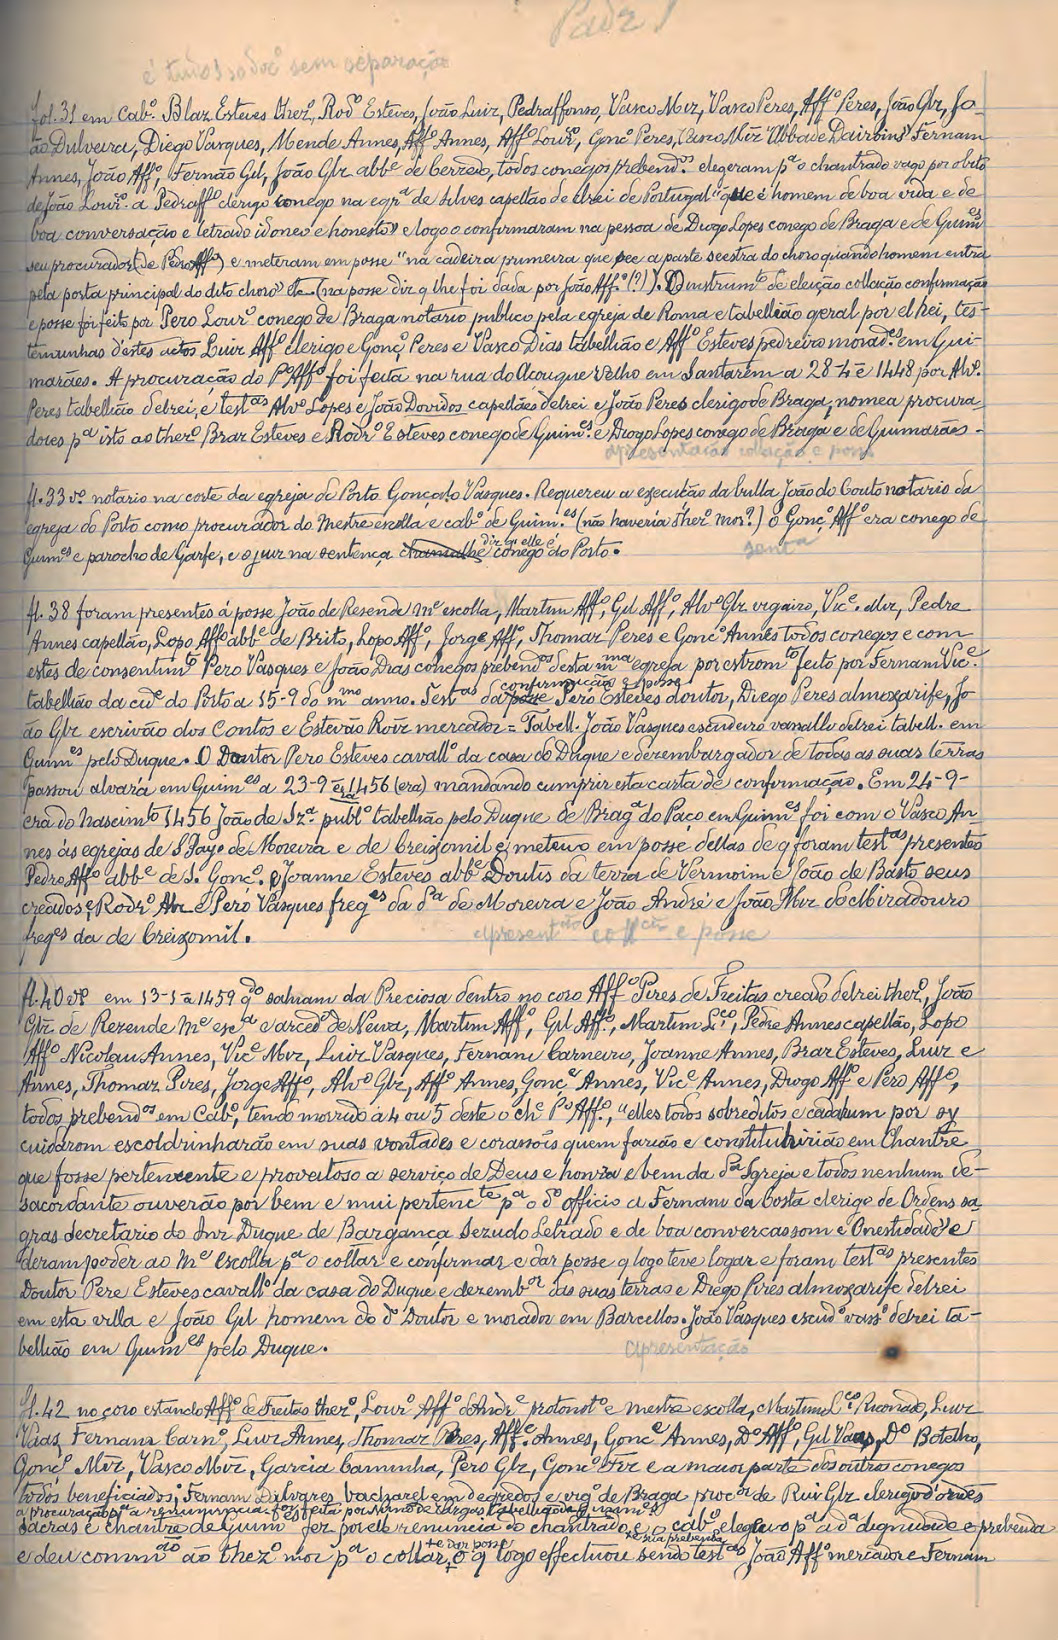 Padr
é tudo sem separação
fol. 31 em Cabº. Blaz Esteves thezº, Rodº Esteves, João Luiz, Pedraffonso, Vasco Mrz, Vasco Peres, Affº Peres, João Glz, Jo-
ão Dulveira, Diego Vasques, Mende Annes, Affº Annes, Affº Lourº, Gonçº Peres, Vasco Mrz Abbade Dairbins Fernam
Annes, João Affº, Fernão Gil, João Glz abbe de Cerredo, todos conegos prebendos. elegeram pª o chantrado vago por obito
de João Lourº a Pedraffº clerigo conego na egrª de Silves capellão de elrei de Portugal "que é homem de boa vida e de
boa conversação e letrado idoneo e honesto" e logo o confirmaram na pessoa de Diogo Lopes conego de Braga e de Guimes
seu procurador (de Pedro Affº) e meteram em posse "na cadeira primeira que see a parte seestra do choro quando homem entra
pela porta principal do dito choro" (na posse diz q lhe foi dada por João Affº (?)). O instrumto de eleição collação confirmação
e posse foi feito por Pero Lourº conego de Braga notario publico pela egreja de Roma e tabellião geral por el hei, tes-
temunhas d'estes actos Luiz Affº clerigo e Gonçº Peres e Vasco Dias tabellião e Affº Esteves pedreiro moradores em Gui-
marães. A procuração do Pº Affº foi feita na rua do Açougue Velho em Santarem a 28-4-é 1448 por Alvº
Peres tabellião delrei, e testas Alvº Lopes e João Dovidos capellães delrei e João Peres clerigo de Braga, nomea procura-
dores pª isto ao thezº Braz Esteves e Rodrº Esteves conego de Guimes e Diogo Lopes conego de Braga e de Guimarães -
apresentação collação e posse
fl. 33 vº. notario na corte da egreja do Porto Gonçalo Vasques. Requereu a execução da bulla João do Couto notario da
egreja do Porto como procurador do Mestre escolla e cabº de Guim.es (não haveria thezº mor?) o Gonçº Affº era conego de
Guimes e parocho de Garfe, e o juiz na sentença diz q elle é conego do Porto.
sentª
fl. 38 foram presentes á posse João de Resende Me escolla, Martim Affº, Gil Affº, Alvº Glz vigairo, Vicº. Mrz, Pedre
Annes capellão, Lopo Affº abbe de Brito, Lopo Affº, Jorge Affº, Thomaz Peres e Gonçº Annes todos conegos e com
estes de consentimto Pero Vasques e João Dias conegos prebendos desta mma egreja por estromto feito por Fernam Vicº.
tabellião da cide do Porto a 15-9 do mmo anno. Testas da confirmação e posse Pero Esteves doutor, Diego Peres almoxarife, Jo-
ão Glz escrivão dos Contos e Estevão Roiz mercador = Tabell. João Vasques escudeiro vassallo delrei tabell. em
Guimes pelo Duque. O Doutor Pero Esteves cavallº da casa do Duque e desembargador de todas as suas terras
passou alvará em Guimes a 23-9 1456 (era) mandando cumprir esta carta de confirmação. Em 24-9-
era do Nascimto 1456 João de Szª. publº tabellião pelo Duque de Bragª do Paço em Guimes foi com o Vasco An-
nes ás egrejas de S. Payo de Moreira e de Creixomil e meteuo em posse dellas de q foram testas presentes
Pedro Affº abbe de S. Gonçº. e Joanne Esteves abbe Doutis da terra de Vermoim e João de Basto seus
creados e Rodrº e Pero Vasques freges da dª de Moreira e João André e João Mrz do Miradouro
freges da de Creixomil.
apresentão collção e posse
fl. 40 vº em 13-1-é 1459 qdo sahiam da Preciosa dentro no coro Affº Pires de Freitas creado delrei thezº, João
Glz de Rezende Me escª e arcedº de Neiva, Martim Affº, Gil Affº, Martim Lço, Pedre Annes capellão, Lopo
Affº Nicolau Annes, Vicº Mrz, Luiz Vasques, Fernam Carneiro, Joanne Annes, Braz Esteves, Luiz e
Annes, Thomaz Pires, Jorge Affº, Alvº Glz, Affº Annes, Gonçº Annes, Vicº Annes, Diogo Affº e Pero Affº,
todos prebendos em Cabº, tendo morrido a 4 ou 5 deste o che Pº Affº., "elles todos sobreditos e cada hum por sy
cuidarom escoldrinharão em suas vontades e corassois quem farião e constituhirião em Chantre
que fosse pertencente e proveitoso a serviço de Deus e honra e bem da dª Igreja e todos nenhum de-
sacordante ouverão por bem e mui pertencte pª o dº officio a Fernam da Costa clerigo de Ordens sa-
gras secretario do Snr Duque de Bargança Sezudo Letrado e de boa conversassom e Onestidade" e
deram poder ao Me escolla pª o collar e confirmar e dar posse q logo teve logar e foram testas presentes
Doutor Pere Esteves cavallº da casa do Duque e dezembor das suas terras e Diego Pires almoxarife delrei
em esta villa e João Gil homem do dº Doutor e morador em Barcellos. João Vasques escudº vassº delrei ta-
bellião em Guimes pelo Duque.
apresentação
fl. 42 no coro estando Affº de Freitas thezº, Lourº Affº dAndrº protonotº e mestre escolla, Martim Lço Ruonado, Luiz
Vaas, Fernam Carnº, Luiz Annes, Thomaz Peres, Affº Annes, Gonçº Annes, Dº Affº, Gil Vaas, Dº Botelho,
Gonçº Mrz, Vasco Mrz, Garcia Caminha, Pero Glz, Gonçº Frz e a maior parte dos outros conegos
todos beneficiados; Fernam Dalvares bacharel em degredos e vigº de Braga procor de Rui Glz clerigo d'ordes
a procuração pª a renumciencia foi feita por Nuno de Vargas tabellião de
sacras e chantre de Guimes fez por elle renuncia do chantrado e sua prebenda e o cabº elegeu o pª a dª dignidade e prebenda
e deu commão ao thezº mor pª o collar e dar posse, o q logo effectuou sendo testas João Affº mercador e Fernam